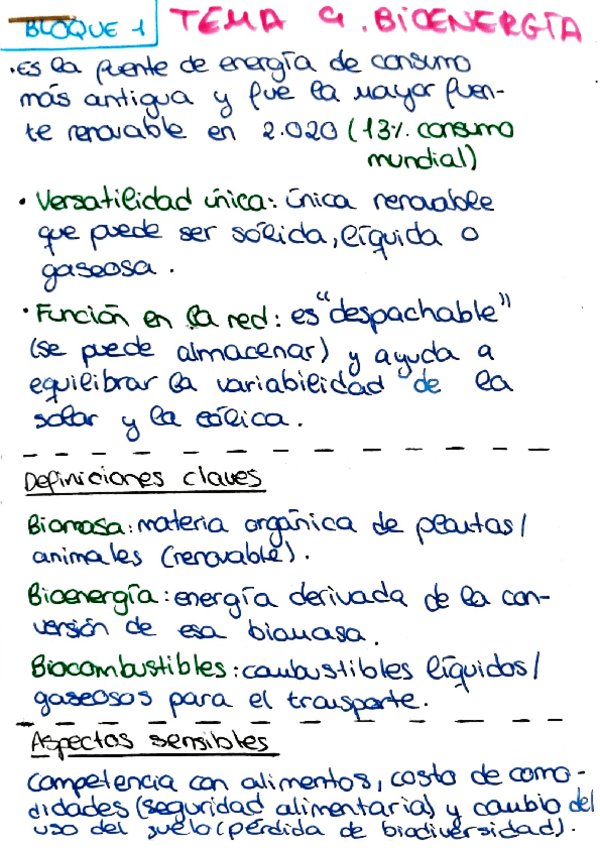 BLOQUE 1 TEMA 9. BIOENERGÍA
·Es la fuente de energía de consumo
más antigua y fue la mayor fuen-
te renovable en 2.020 (13% consumo
mundial)
· Versatilidad única: única renovable
que puede ser sólida, líquida o
gaseosa.
· Función en la red: es "despachable"
(se puede almacenar) y ayuda a
equilibrar la variabilidad de la
solar y la eólica.
Definiciones claves
Biomasa: materia orgánica de plantas/
animales (renovable).
Bioenergía: energía derivada de la con-
versión de esa biomasa.
Biocombustibles: combustibles líquidos/
gaseosos para el transporte.
Aspectos sensibles
Competencia con alimentos, costo de como-
didades (seguridad alimentaria) y cambio del
uso del suelo (pérdida de biodiversidad).